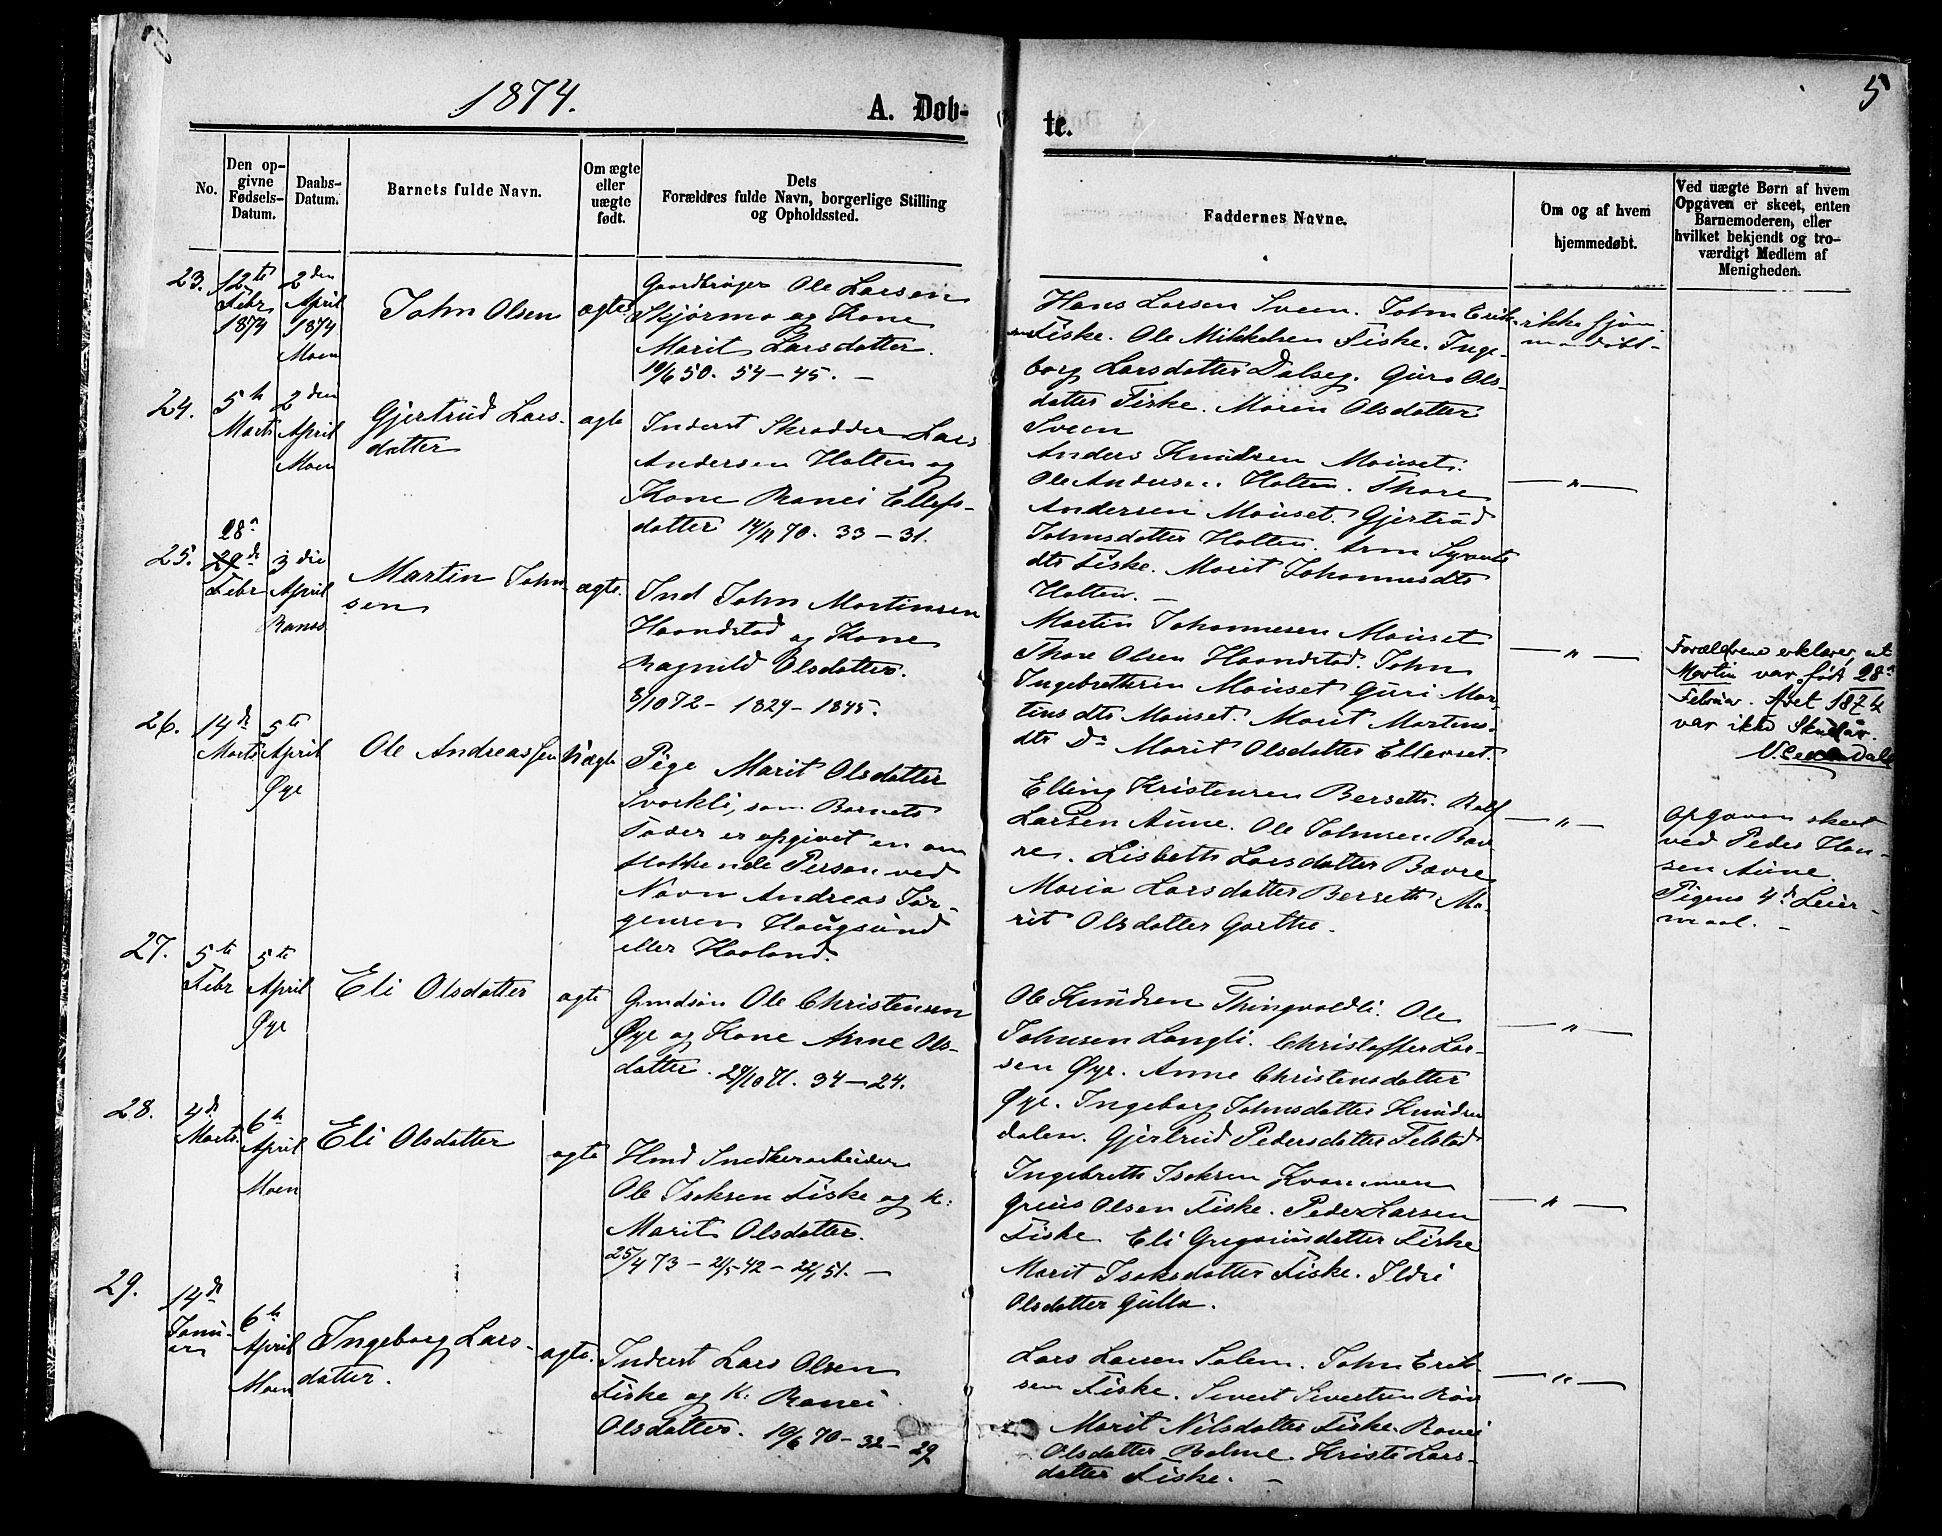 1874.
A. Døb-
te.
5
No.
Den op-
givne
Fødsels-
Datum.
Daabs-
Datum.
Barnets fulde Navn.
Om ægte
eller
uægte
født.
Dets
Forældres fulde Navn, borgerlige Stilling
og Opholdssted.
Faddernes Navne.
Om og af hvem
hjemmedøbt.
Ved uægte Børn af hvem
Opgaven er skeet, enten
Barnemoderen, eller
hvilket bekjendt og tro-
værdigt Medlem af
Menigheden.
23.
12te
Febr
1874
2den
April
1874
Moen
John Olsen
ægte
Gaardbruger Ole Larsen
Skjørmo og Kone
Marit Larsdatter.
19/6 50. 54 – 45. –
Hans Larsen Sveen. John Erik-
sen Fiske. Ole Mikkelsen Fiske. Inge-
borg Larsdatter Dalseg. Guro Ols-
datter Fiske. Maren Olsdatter
Sveen
ikke hjem-
medøbt –
24.
5te
Marts
2den
April
Moen
Gjertrud Lars-
datter
ægte
Inderst Skrædder Lars
Andersen Holten og
Kone Ranei Ellefs-
datter 14/11 70. 33 – 31.
Anders Knudsen Mauset.
Ole Andersen Holten. Thore
Andersen Mauset. Gjertrud
Johnsdatter Holten. Arm Syverts
dtr Fiske. Marit Johannesdtr
Holten. –
— " —
25.
28de
29de
Febr
3die
April
Ranes
Martin John-
sen
ægte.
Ind John Martinsen
Haandstad og Kone
Ragnild Olsdatter.
8/10 72 – 1829 – 1845.
Martin Johannesen Mauset
Thore Olsen Haandstad. John
Ingebrethsen Mauset Guri Mar-
tins dtr Mauset. Marit Martins-
dtr Do Marit Olsdatter Ellevset.
— " —
Forældrene erklærer, at
Martin var født 28de
Februar. Aaret 1874
var ikke Skudaar.
26.
14de
Marts
5te
April
Øye
Ole Andreassen
Uægte
Pige Marit Olsdatter
Svorkli, som Barnets
Fader er opgivet en om
flakkende Person ved
Navn Andreas Jør-
gensen Haugsund
eller Haaland.
Elling Kristensen Berseth. Rolf
Larsen Aune. Ole Johnsen Bæv-
re. Lisbeth Larsdatter Bævre
Maria Larsdatter Berseth Ma-
rit Olsdatter Garthe.
— " —
Opgaven skeet
ved Peder Han-
sen Aune.
Pigens 4de Leier-
maal. –
27.
5te
Febr
5te
April
Øye
Eli Olsdatter
ægte
Grndsøn Ole Christensen
Øye og Kone Anne Ols-
datter. 29/10 71. 34 – 24.
Ole Knudsen Thingvoldli. Ole
Johnsen Langli. Christoffer Lar-
sen Øye. Anne Christensdatter
Øye. Ingeborg Johnsdatter Knudsen
dalen. Gjertrud Pedersdatter Felstad
— " —
28.
4de
Marts.
6te
April
Moen
Eli Olsdatter
ægte
Hmd Snedkerarbeider
Ole Isaksen Fiske og K:
Marit Olsdatter.
25/4 73 – 21/5 42 – 22/1 51. –
Ingebreth Isaksen Kvammen
Greius Olsen Fiske. Peder Larsen
Fiske Eli Gregoriusdatter Fiske
Marit Isaksdatter Fiske. Ildri
Olsdatter Gulla.
— " —
29.
14de
Janu-
ar
6te
April
Moen
Ingeborg Lars-
datter.
ægte.
Inderst Lars Olsen
Fiske og K: Ranei
Olsdatter. 19/6 70 – 32 – 29
Lars Larsen Solem. John Erik-
sen Fiske. Sivert Sivertsen Røv
Marit Nilsdatter Fiske. Ranei
Olsdatter Bolme. Kristi Lars-
datter Fiske. –
— " —